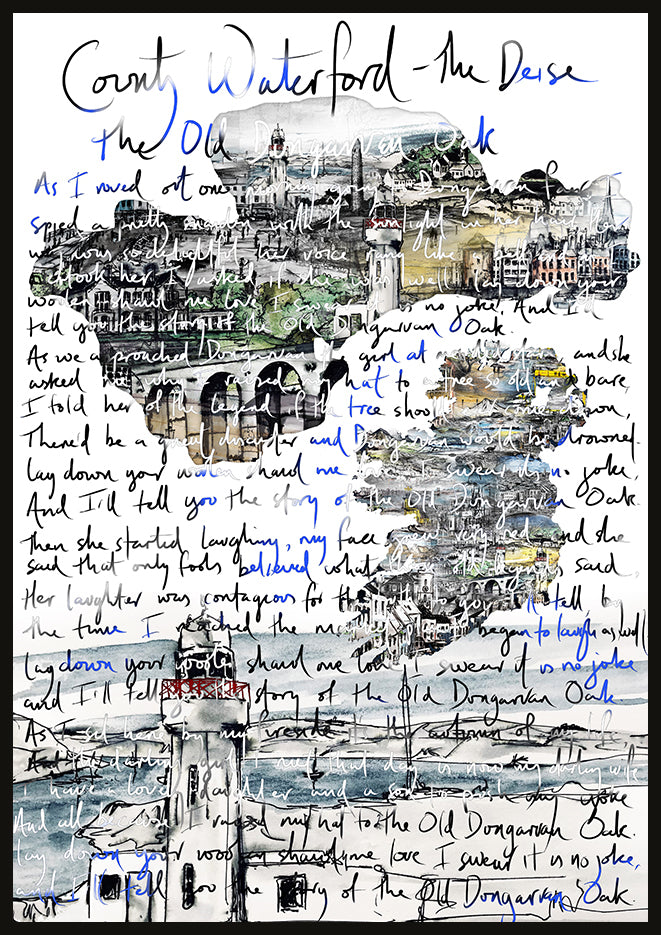 County Waterford - the Deise
The Old Dongarvan Oak
As I roved out one going Dongarvan
spied a pretty maiden with the light in her
was so delightful her voice rang like a
I asked if she was well lay down your
woolen shawl me love I swear it is no joke, And I'll
tell you the story of the Old Dongarvan Oak.
As we approached Dongarvan girl at and she
asked me why I raised my hat to a tree so old and bare,
I told her of the legend if the tree should come down,
There'd be a great disaster and Dongarvan would be drowned.
lay down your woolen shawl me love I swear it is no joke,
And I'll tell you the story of the Old Dongarvan Oak.
Then she started laughing, my face went very red and she
said that only fools believed what said,
Her laughter was contagious for the tell by
the time I reached the began to laugh as well
Lay down your woolen shawl me love I swear it is no joke
and I'll tell story of the Old Dongarvan Oak.
As I sit here by my fireside in the autumn of my life
And the darlin' girl I met that day is now my darling wife
I have a lovely daughter and a son to
And all I raise my hat to the Old Dongarvan Oak.
lay down your woolen shawl me love I swear it is no joke,
and I'll tell you the story of the Old Dongarvan Oak.